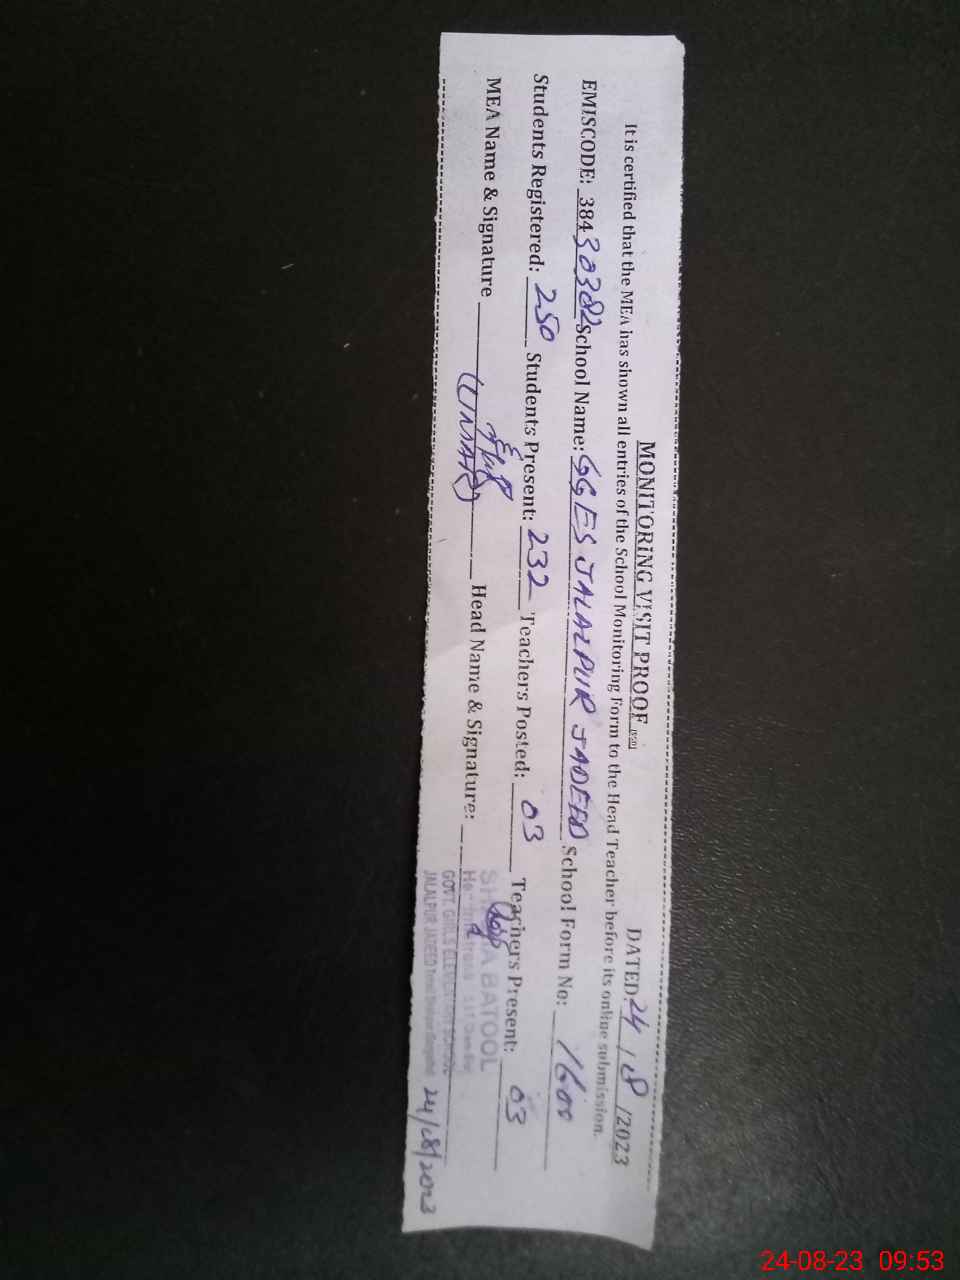 MONITORING VISIT PROOF
DATED: 24 / 8 /2023
It is certified that the MEA has shown all entries of the School Monitoring Form to the Head Teacher before its online submission.
EMISCODE: 38430382 School Name: GGES JALALPUR JADEED School Form No: 1600
Students Registered: 250 Students Present: 232 Teachers Posted: 03 Teachers Present: 03
MEA Name & Signature (UMAR) Head Name & Signature:
BATOOL
GOVT. GIRLS ELEMENTARY SCHOOL
JALALPUR JADEED
24/08/2023
24-08-23 09:53